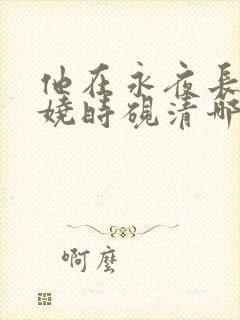 他在永夜長
嬈時硯清哪
啊麼